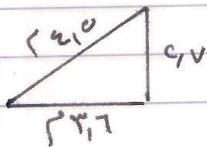 ٤,٥ م
٢,٧
٣,٦ م